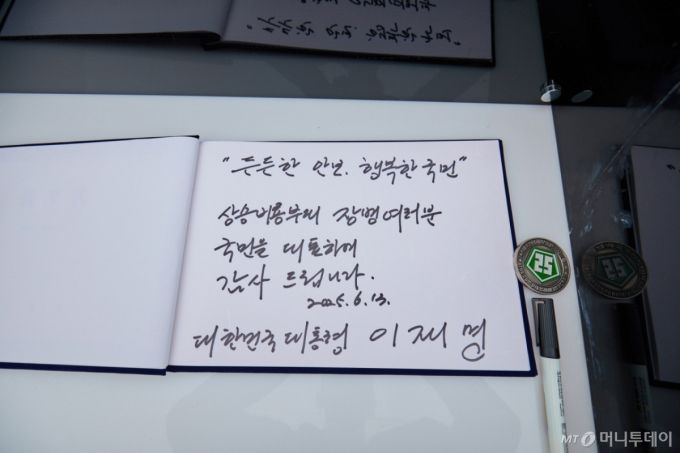 "든든한 안보. 행복한 국민"
상승비룡부대 장병여러분
국민을 대표하여
감사 드립니다.
2025. 6. 13.
대한민국 대통령 이재명
25
MT 머니투데이